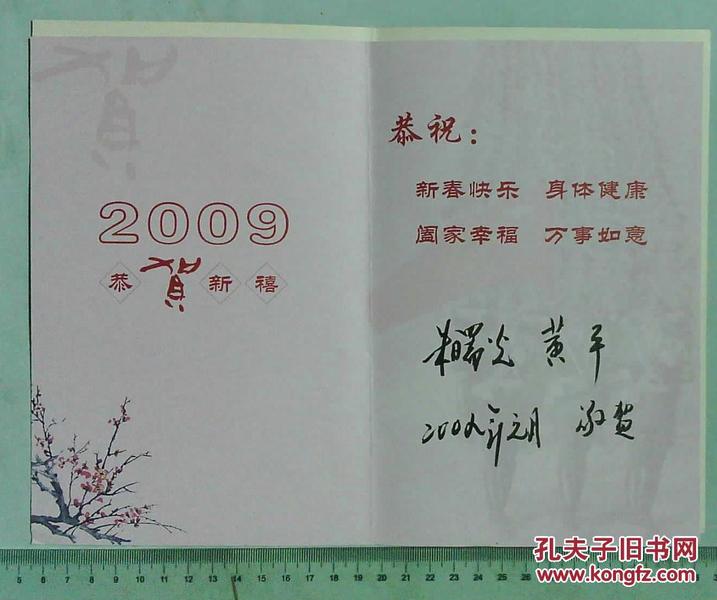 賀
2009
恭賀新禧
恭祝：
新春快乐 身体健康
阖家幸福 万事如意
朱曙光 黄平
2009年元月 敬贺
孔夫子旧书网
www.kongfz.com
5 6 7 8 9 10 11 12 13 14 15 16 17 18 19 20 21 22 23 24 25 26 27 28 29 30 31 32 33 34 35